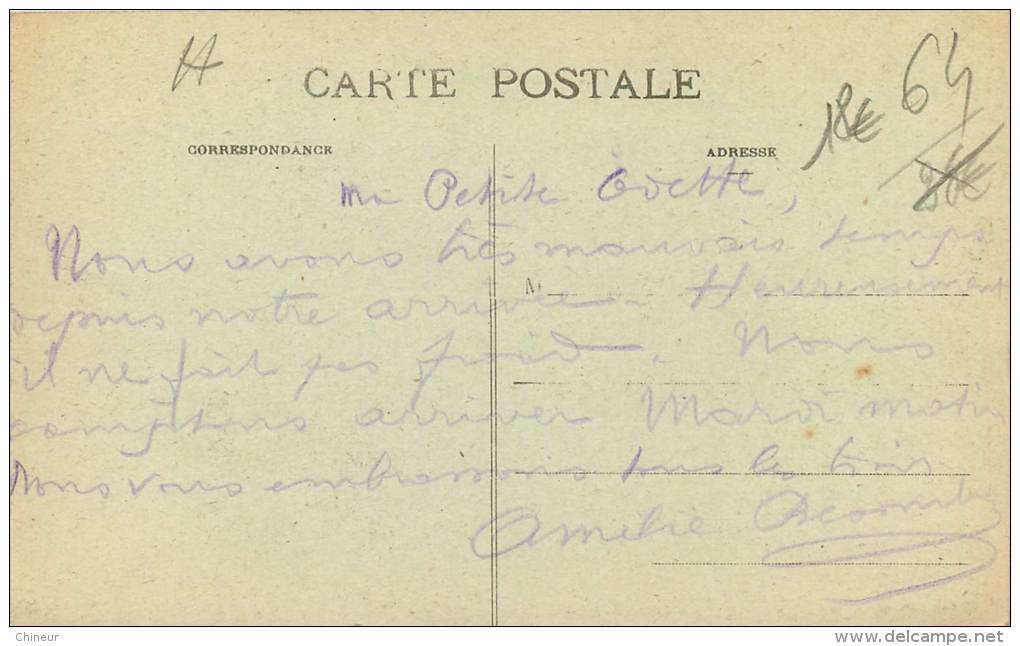 H
CARTE POSTALE
64
18€
CORRESPONDANCE
ADRESSE
Ma Petite Odette,
Nous avons très mauvais temps
M
depuis notre arrivée. Heureusement
il ne fait pas froid. Nous
comptons arriver Mardi matin
Nous vous embrassons tous les trois
Amélie
Chineur
delcampe.net